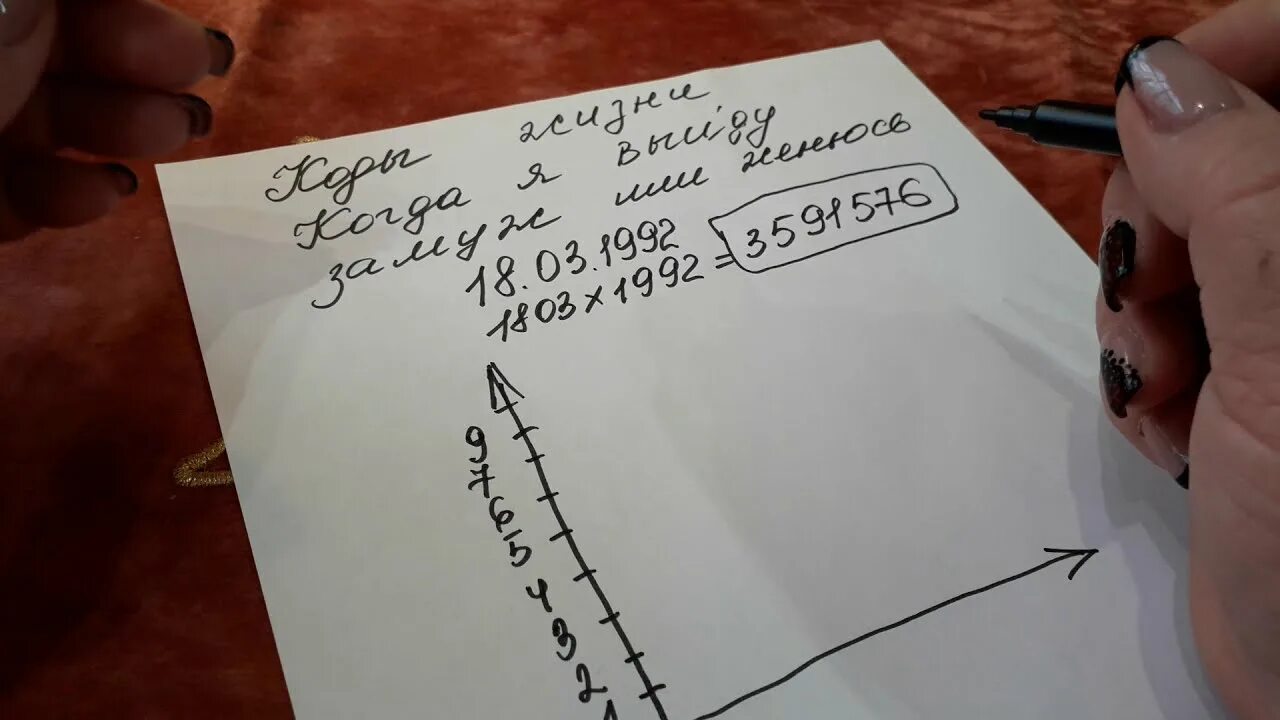 Коды жизни
Когда я выйду
замуж или женюсь
18.03.1992
1803x1992 = 3591576
9
7
6
5
4
3
2
1